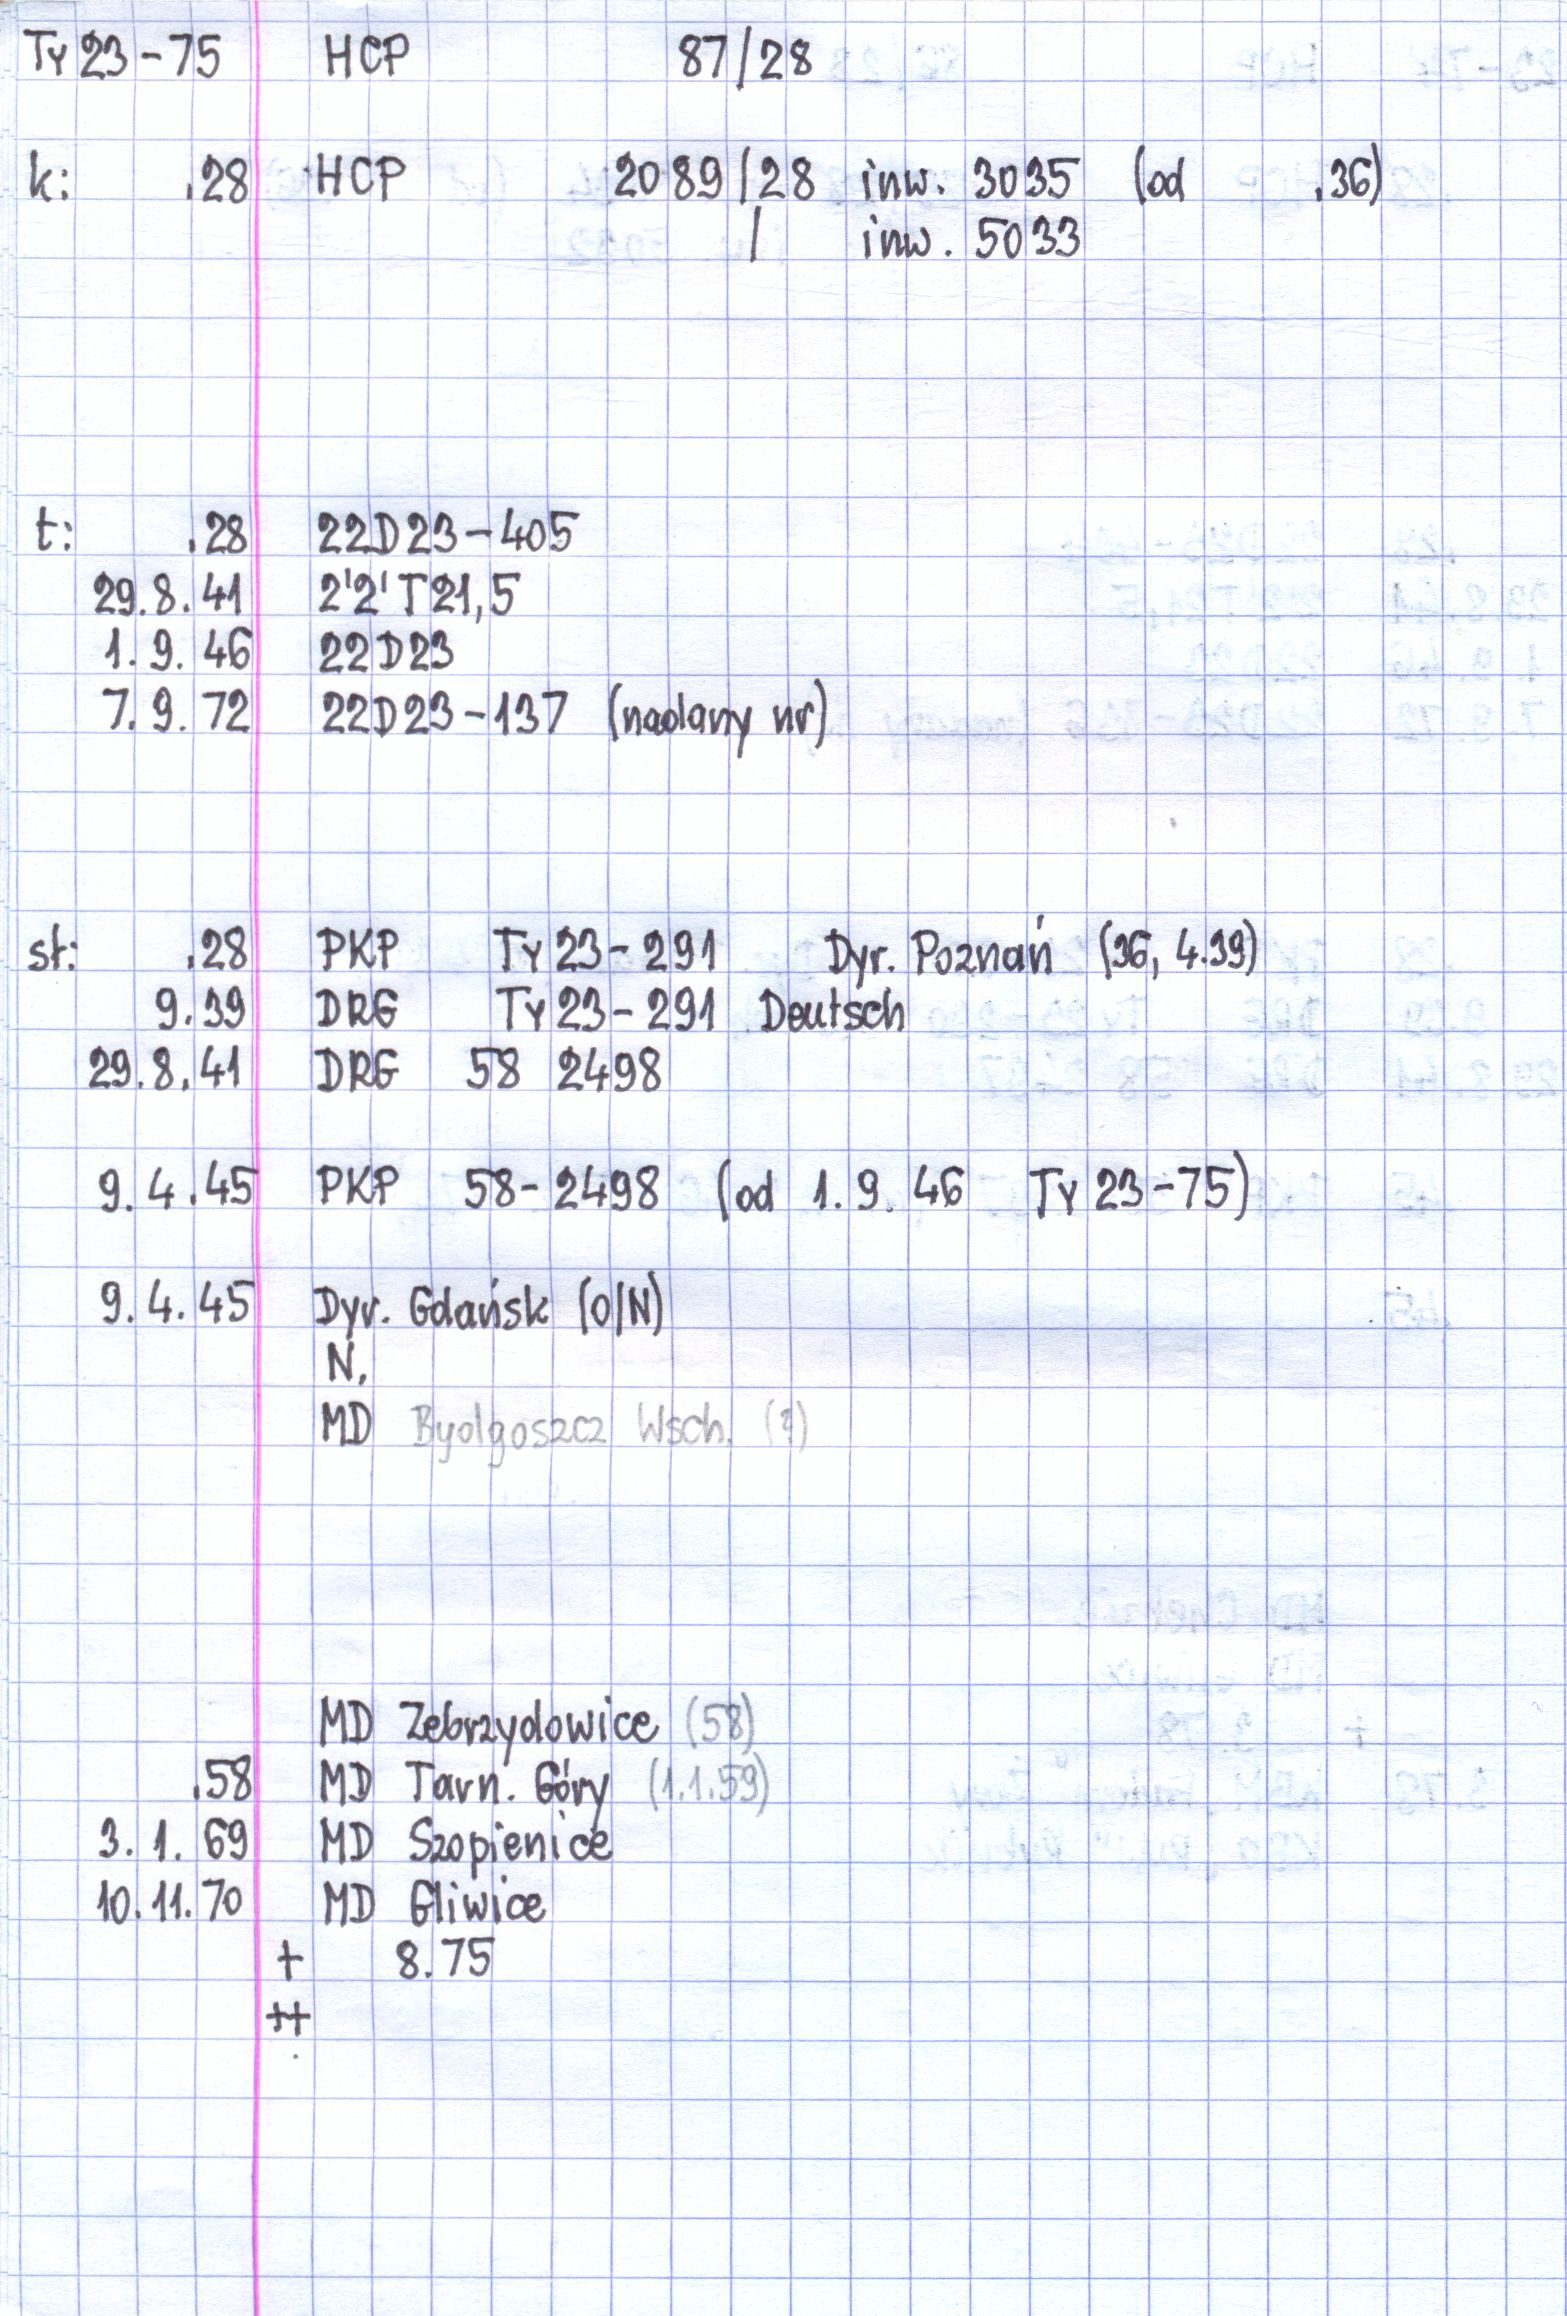 Ty 23-75 HCP 87/28
k: .28 HCP 2089/28 inw. 3035 (od .36)
/ inw. 5033
t: .28 22D23-405
29.8.41 2'2'T21,5
1.9.46 22D23
7.9.72 22D23-137 (nadany nr)
st: .28 PKP Ty 23-291 Dyr. Poznań (36, 4.39)
9.39 DRG Ty 23-291 Deutsch
29.8.41 DRG 58 2498
9.4.45 PKP 58-2498 (od 1.9.46 Ty 23-75)
9.4.45 Dyr. Gdańsk (O/N)
N.
MD Bydgoszcz Wsch. (?)
MD Zebrzydowice (58)
.58 MD Tarn. Góry (1.1.59)
3.1.69 MD Szopienice
10.11.70 MD Gliwice
+ 8.75
++